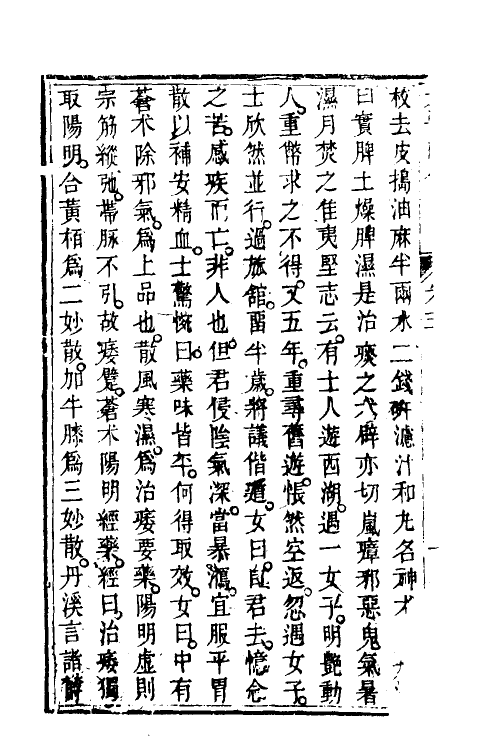 枚去皮搗油麻半兩水二錢研濾汁和丸名神朮
曰實脾土燥脾濕是治痰之六癖亦切嵐瘴邪惡鬼氣暑
濕月焚之佳夷堅志云有士人遊西湖遇一女子明艷動
人重幣求之不得又五年重尋舊遊悵然空返忽遇女子
士欣然並行過旅館留半歲將議偕遁女曰自君去憶念
之苦感疾而亡非人也但君侵陰氣深當暴瀉宜服平胃
散以補安精血士驚惋曰藥味皆平何得取效女曰中有
蒼朮除邪氣為上品也散風寒濕為治痿要藥陽明虛則
宗筋縱弛帶脈不引故痿躄蒼朮陽明經藥經曰治痿獨
取陽明合黃栢為二妙散加牛膝為三妙散丹溪言諸